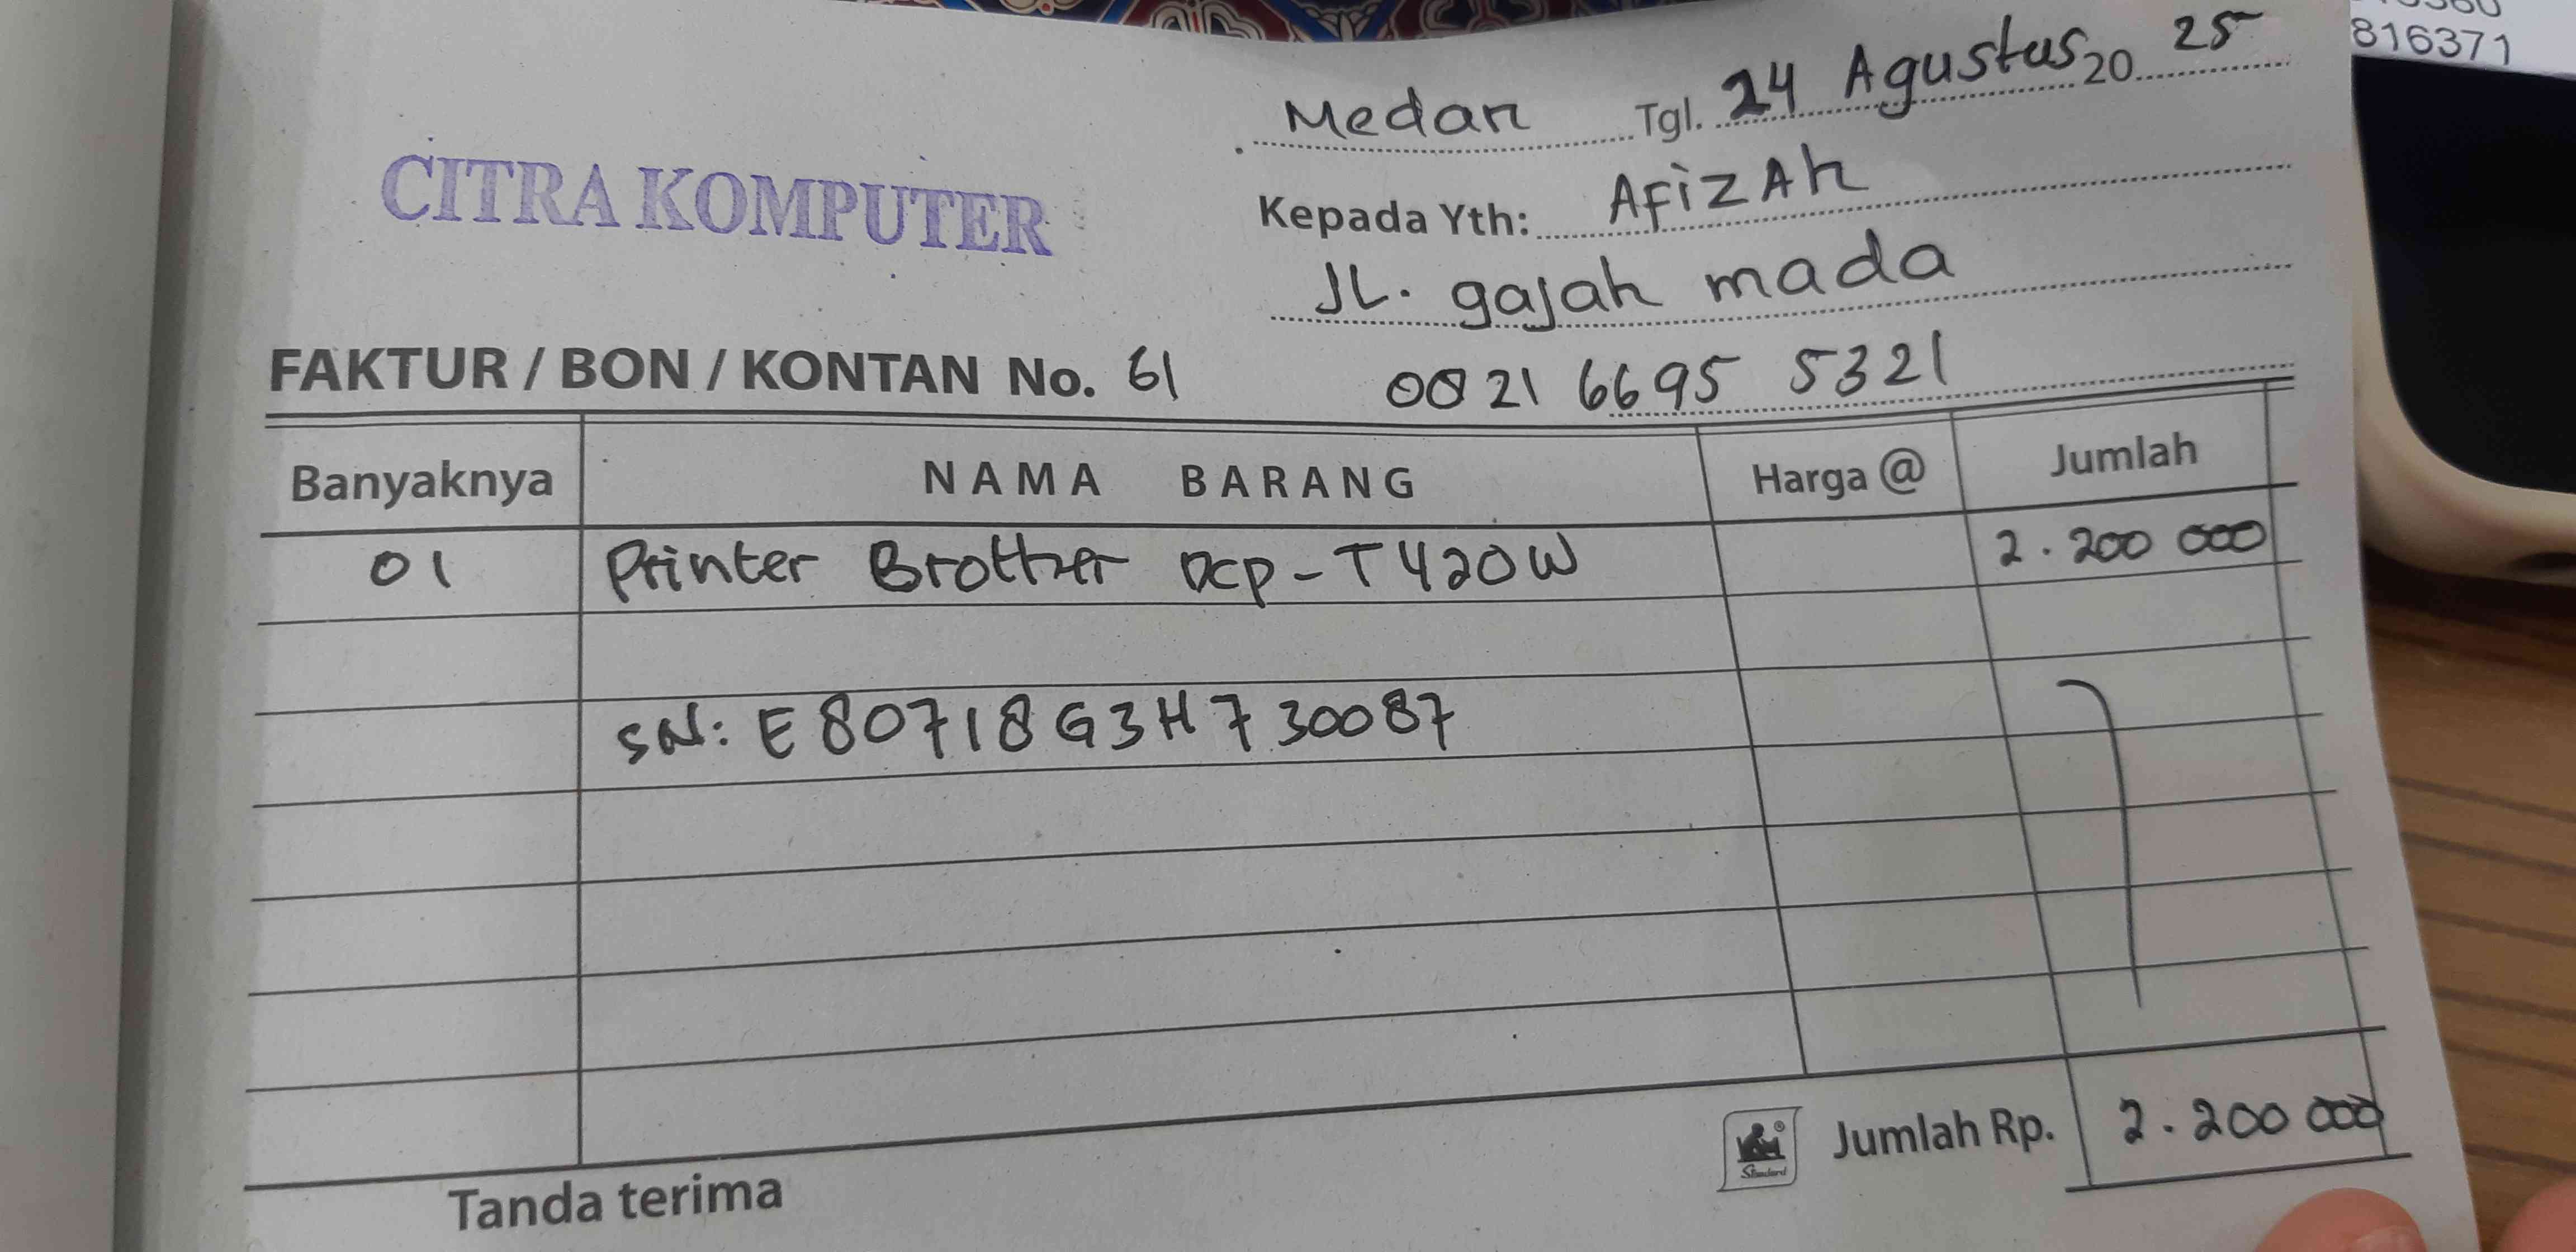 816371
Medan Tgl. 24 Agustus 2025
CITRA KOMPUTER
Kepada Yth: AfizAh
JL. gajah mada
FAKTUR / BON / KONTAN No. 61
0821 6695 5321
Banyaknya NAMA BARANG Harga @ Jumlah
01 Printer Brother DCP-T420W 2.200 000
SN: E80718G3H730087
Standard
Jumlah Rp. 2.200 000
Tanda terima